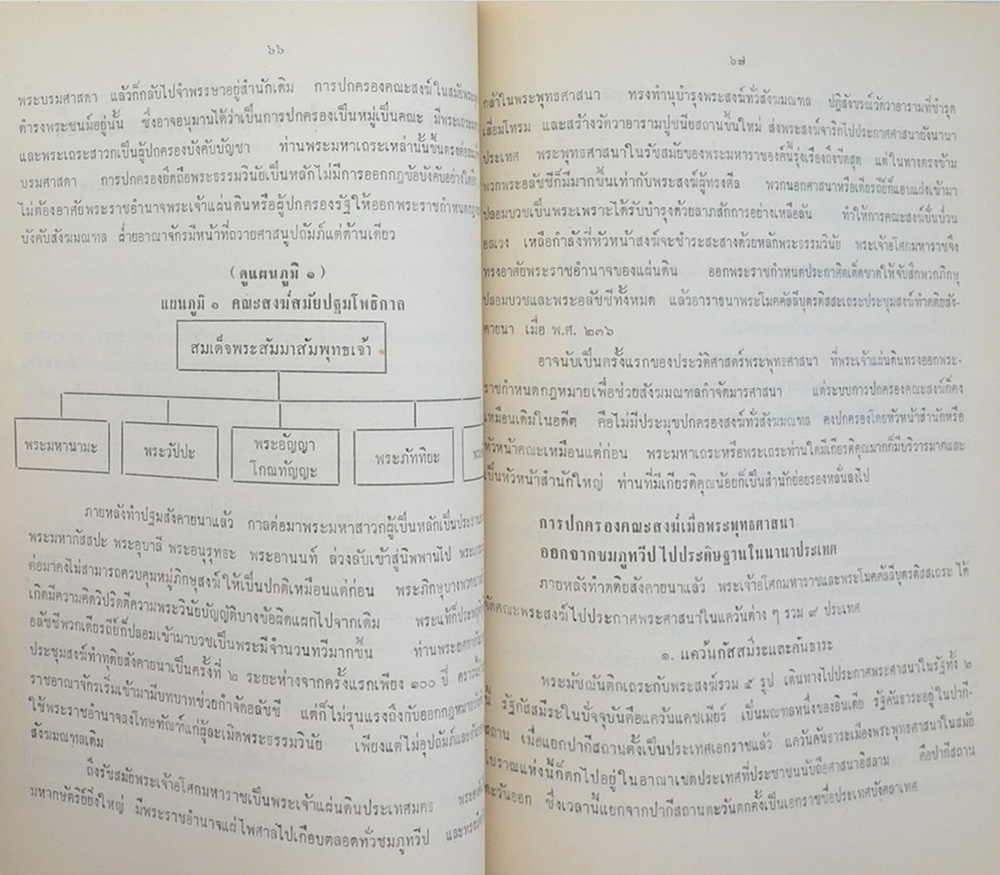 ๖๖
พระบรมศาสดา แล้วก็กลับไปจำพรรษาอยู่สำนักเดิม การปกครองคณะสงฆ์ในสมัยพระพุทธ
ดำรงพระชนม์อยู่นั้น ซึ่งอาจอนุมานได้ว่าเป็นการปกครองเป็นหมู่เป็นคณะ มีพระเถระ
และพระเถระสาวกเป็นผู้ปกครองบังคับบัญชา ท่านพระมหาเถระเหล่านั้นขึ้นตรงต่อ
บรมศาสดา การปกครองยึดถือพระธรรมวินัยเป็นหลักไม่มีการออกกฎข้อบังคับอย่างใด
ไม่ต้องอาศัยพระราชอำนาจพระเจ้าแผ่นดินหรือผู้ปกครองรัฐให้ออกพระราชกำหนดกฎ
บังคับสังฆมณฑล ฝ่ายอาณาจักรมีหน้าที่ถวายศาสนูปถัมภ์แต่ด้านเดียว
(ดูแผนภูมิ ๑)
แผนภูมิ ๑ คณะสงฆ์สมัยปฐมโพธิกาล
สมเด็จพระสัมมาสัมพุทธเจ้า
พระมหานามะ
พระวัปปะ
พระอัญญา
โกณทัญญะ
พระภัททิยะ
ภายหลังทำปฐมสังคายนาแล้ว กาลต่อมาพระมหาสาวกผู้เป็นหลักเป็นประธาน
พระมหากัสสปะ พระอุบาลี พระอนุรุทธะ พระอานนท์ ล่วงลับเข้าสู่นิพพานไป
ต่อมาคงไม่สามารถควบคุมหมู่ภิกษุสงฆ์ให้เป็นปกติเหมือนแต่ก่อน พระภิกษุบางพวก
เกิดมีความคิดวิปริตตีความพระวินัยบัญญัติบางข้อผิดแผกไปจากเดิม พระแท้ก็ประพฤติ
อลัชชีพวกเดียรถีย์ก็ปลอมเข้ามาบวชเป็นพระมีจำนวนทวีมากขึ้น ท่านพระยศ
ประชุมสงฆ์ทำทุติยสังคายนาเป็นครั้งที่ ๒ ระยะห่างจากครั้งแรกเพียง ๑๐๐ ปี คราวนี้
ราชอาณาจักรเริ่มเข้ามามีบทบาทช่วยกำจัดอลัชชี แต่ก็ไม่รุนแรงถึงกับออกกฎหมาย
ใช้พระราชอำนาจลงโทษทัณฑ์แก่ผู้ละเมิดพระธรรมวินัย เพียงแต่ไม่อุปถัมภ์และ
สังฆมณฑลเดิม
ถึงรัชสมัยพระเจ้าอโศกมหาราชเป็นพระเจ้าแผ่นดินประเทศมคธ พระองค์
มหากษัตริย์ยิ่งใหญ่ มีพระราชอำนาจแผ่ไพศาลไปเกือบตลอดทั่วชมภูทวีป และทรง
๖๗
กล้าในพระพุทธศาสนา ทรงทำนุบำรุงพระสงฆ์ทั่วสังฆมณฑล ปฏิสังขรณ์วัดวาอารามที่ชำรุด
เสื่อมโทรม และสร้างวัดวาอารามปูชนียสถานขึ้นใหม่ ส่งพระสงฆ์จาริกไปประกาศศาสนายังนานา
ประเทศ พระพุทธศาสนาในรัชสมัยของพระมหาราชองค์นี้รุ่งเรืองถึงขีดสุด แต่ในทางตรงข้าม
พวกพระอลัชชีก็มีมากขึ้นเท่ากับพระสงฆ์ผู้ทรงศีล พวกนอกศาสนาหรือเดียรถีย์ก็แอบแฝงเข้ามา
ปลอมบวชเป็นพระเพราะได้รับบำรุงด้วยลาภสักการอย่างเหลือล้น ทำให้การคณะสงฆ์ปั่นป่วน
อลเวง เหลือกำลังที่หัวหน้าสงฆ์จะชำระสะสางด้วยหลักพระธรรมวินัย พระเจ้าอโศกมหาราชจึง
ทรงอาศัยพระราชอำนาจของแผ่นดิน ออกพระราชกำหนดประกาศิตเด็ดขาดให้จับสึกพวกภิกษุ
ปลอมบวชและพระอลัชชีทั้งหมด แล้วอาราธนาพระโมคคัลลีบุตรติสสะเถระประชุมสงฆ์ทำตติยสัง-
คายนา เมื่อ พ.ศ. ๒๓๖
อาจนับเป็นครั้งแรกของประวัติศาสตร์พระพุทธศาสนา ที่พระเจ้าแผ่นดินทรงออกพระ-
ราชกำหนดกฎหมายเพื่อช่วยสังฆมณฑลกำจัดมารศาสนา แต่ระบบการปกครองคณะสงฆ์ก็คง
เหมือนเดิมในอดีต คือไม่มีประมุขปกครองสงฆ์ทั่วสังฆมณฑล คงปกครองโดยหัวหน้าสำนักหรือ
หัวหน้าคณะเหมือนแต่ก่อน พระมหาเถระหรือพระเถระท่านใดมีเกียรติคุณมากก็มีบริวารมากและ
เป็นหัวหน้าสำนักใหญ่ ท่านที่มีเกียรติคุณน้อยก็เป็นสำนักย่อยรองหลั่นลงไป
การปกครองคณะสงฆ์เมื่อพระพุทธศาสนา
ออกจากชมภูทวีปไปประดิษฐานในนานาประเทศ
ภายหลังทำตติยสังคายนาแล้ว พระเจ้าอโศกมหาราชและพระโมคคัลลีบุตรติสสเถระ ได้
จัดคณะพระสงฆ์ไปประกาศพระศาสนาในแคว้นต่าง ๆ รวม ๙ ประเทศ
๑. แคว้นกัสสมีระและคันธาระ
พระมัชฌันติกเถระกับพระสงฆ์รวม ๕ รูป เดินทางไปประกาศพระศาสนาในรัฐทั้ง ๒
นี้ รัฐกัสสมีระในปัจจุบันคือแคว้นแคชเมียร์ เป็นมณฑลหนึ่งของอินเดีย รัฐคันธาระอยู่ในปากี-
สถาน เมื่อแยกปากีสถานตั้งเป็นประเทศเอกราชแล้ว แคว้นคันธาระเมืองพระพุทธศาสนาในสมัย
โบราณแห่งนี้ก็ตกไปอยู่ในอาณาเขตประเทศที่ประชาชนนับถือศาสนาอิสลาม คือปากีสถาน
ตะวันออก ซึ่งเวลานี้แยกจากปากีสถานตะวันตกตั้งเป็นเอกราชชื่อประเทศบังคลาเทศ